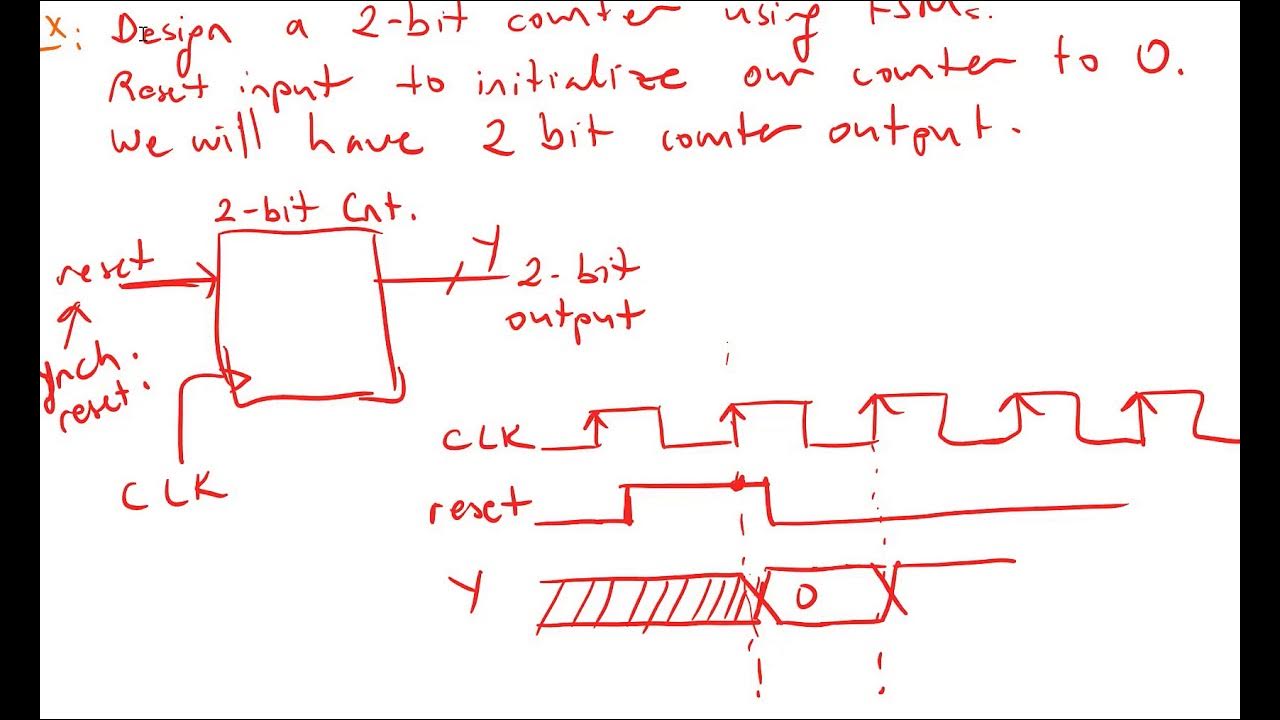 x: Design a 2-bit counter using FSMs.
Reset input to initialize our counter to 0.
We will have 2 bit counter output.
2-bit Cnt.
reset
Y
2-bit
output
ynch.
reset.
CLK
CLK
reset
Y
0